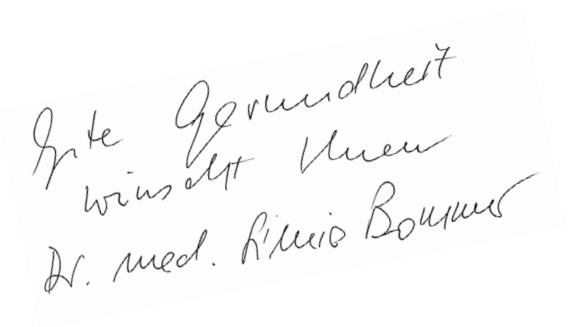 Gute Gesundheit
wünscht Ihnen
Dr. med. Bommer